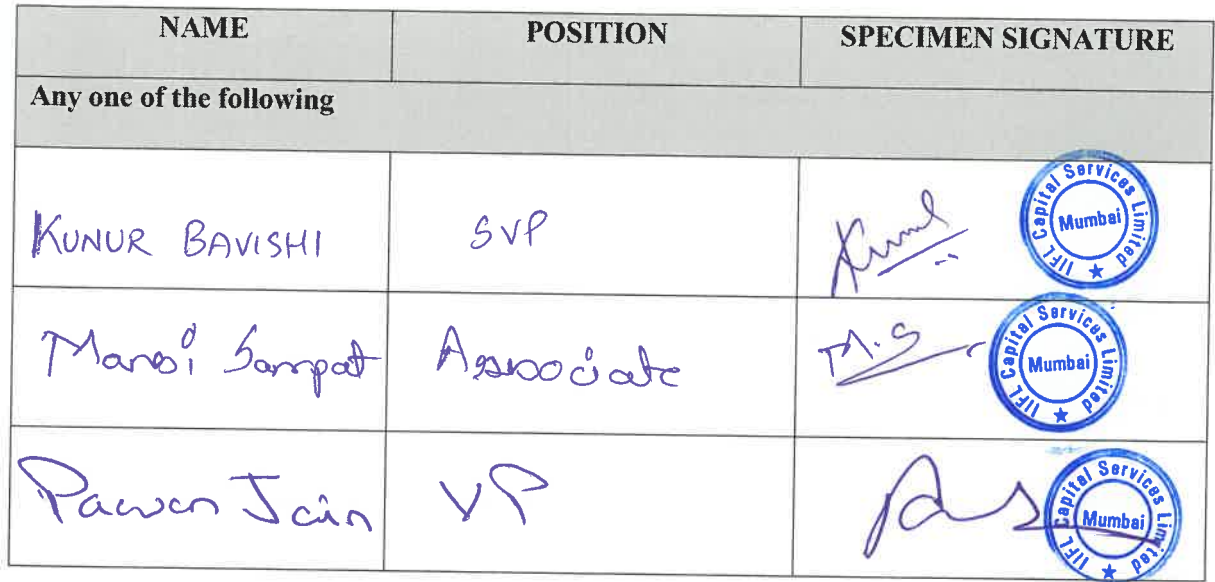 NAME POSITION SPECIMEN SIGNATURE
Any one of the following
KUNUR BAVISHI SVP
IIFL Capital Services Limited
Mumbai
Mansi Sampat Associate M.S
IIFL Capital Services Limited
Mumbai
Pawan Jain VP
IIFL Capital Services Limited
Mumbai